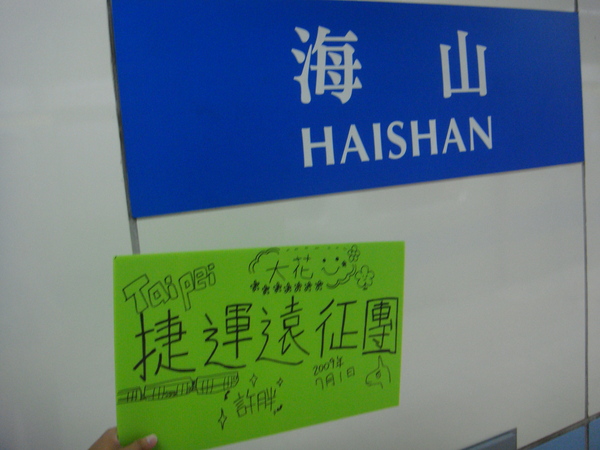 海山
HAISHAN
Taipei
大花
捷運遠征團
2009年
7月1日
許胖